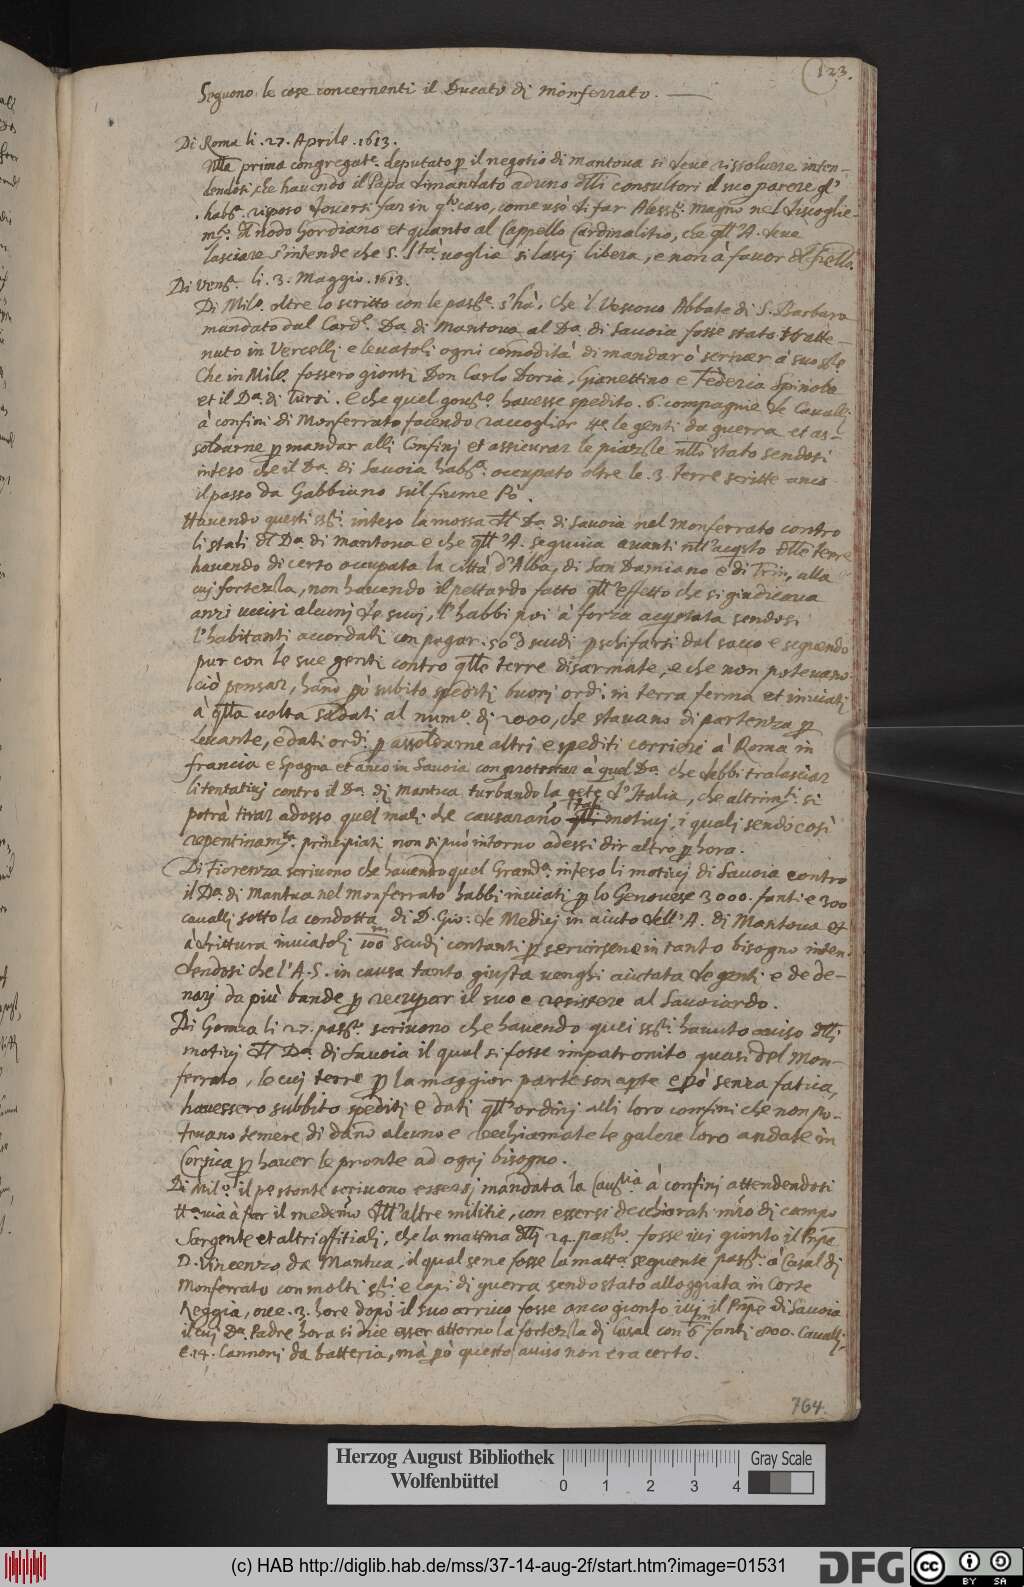 123.
Seguono le cose concernenti il Ducato di Monferrato.
Di Roma li .27. Aprile .1613.
Nlla prima congregate. deputato p il negotio di mantoua si deue rissoluere inten-
dendosi che hauendo il Papa dimandato ad uno dlli consultori il suo parere
habbe. risposo douersi far in qto. caso, come usò di far Aless.o Magno nel discoglie-
mto. dl nodo Gordiano et quanto al Cappello Cardinalitio, che qll'A. deue
lasciare s'intende che S. Stà. uoglia si lasci libera, e non à fauor
Di Vena. li .3. Maggio .1613.
Di Milo. oltre lo scritto con le passte. s'hà, che il Vescouo Abbate di S. Barbara
mandato dal Cardl. Da. di Mantoua al Da. di Sauoia fosse stato tratte-
nuto in Vercelli e leuatoli ogni comodità di mandar ò scriuer à
Che in Milo. fossero gionti Don Carlo Doria, Gianettino e Federia Spinola
et il Da. di Tursi. e che quel gouro. hauesse spedito .6. compagnie de Caualli
à confini di Monferrato facendo raccoglier tte le genti da guerra et as-
soldarne p mandar alli Confini et assicurar le piazze nllo stato sendosi
inteso che il Da. di Sauoia habba. occupato oltre le .3. terre scritte anco
il passo da Gabbiano sul fiume Pò.
Hauendo questi SSri. inteso la mossa dl Da. di Sauoia nel Monferrato contro
li stati dl Da. di Mantoua e che qll'A. seguiua auanti nll'acqsto dlle terre
hauendo di certo occupata la città d'Alba, di San Damiano e di Trin, alla
cui fortezza, non hauendo il pettardo fatto qll'effetto che si giudicaua
anzi uccisi alcuni de suoi, l'habbi poi à forza acqstata sendosi
l'habitanti accordati con pagar scudi p schifarsi dal sacco e seguendo
pur con le sue genti contro qlle terre disarmate, e che non poteuano
ciò pensar, hano pò subito spediti buoni ordi. in terra ferma et inuiati
à qlla uolta soldati al numo. di 2000, che stauano di partenza p
Leuante, e dati ordi. p assoldarne altri e spediti corrieri à Roma in
francia e Spagna et anco in Sauoia con protestar à quel Da. che debbi tralasciar
li tentatiui contro il Da. di Mantua turbando la qete d'Italia, che altrimti. si
potrà tirar adosso quel mali che causarano tali motiui, i quali sendo così
repentinamte. principiati non si può intorno adessi dir altro p hora.
Di Fiorenza scriuono che hauendo quel Grandа. inteso li motiui di Sauoia contro
il Da. di Mantua nel Monferrato habbi inuiati p lo Genouese 3000. fanti e 300
caualli sotto la condotta di D. Gio: de Medici in aiuto dell'A. di Mantoua et
à drittura inuiatoli 100 m scudi contanti p seruirsene in tanto bisogno inten-
dendosi che l'A.S. in causa tanto giusta uenghi aiutata de genti e de de-
nari da più bande p recuperar il suo e resistere al Sauoiardo.
Di Genoua li 27. passto. scriuono che hauendo quei SSri. hauuto auiso dlli
motiui dl Da. di Sauoia il qual si fosse impatronito quasi del Mon-
ferrato, le cui terre p la maggior parte son apte e pò senza fatica,
hauessero subbito spediti e dati qll'ordini alli loro confini che non po-
teuano temere di dano alcuno e recchiamate le galere loro andate in
Corsica p hauer le pronte ad ogni bisogno.
Di Milo. il pnte scriuono essersi mandata la Cauria à confini attendendosi
tta uia à far il medemo dll'altre militie, con essersi decchiarati mro di campo
Sargente et altri offitiali, che la mattina dlli 24 passto. fosse iui gionto il Pnpe
D. Vincenzo da Mantua, il qual se ne fosse la matta. seguente passto. à Casal di
Monferrato con molti sri. e capi di guerra sendo stato alloggiato in Corte
Reggia, oue .3. hore dopò il suo arriuo fosse anco gionto iui il Pnpe di Sauoia
il cui Da. Padre hora si dice esser attorno la fortezza di Casal con 6 m fanti 800. Caualli
e .14. Cannoni da batteria, mà pò questo auiso non era certo.
764.
Herzog August Bibliothek
Wolfenbüttel
0 1 2 3 4
Gray Scale
(c) HAB http://diglib.hab.de/mss/37-14-aug-2f/start.htm?image=01531
DFG
cc BY SA